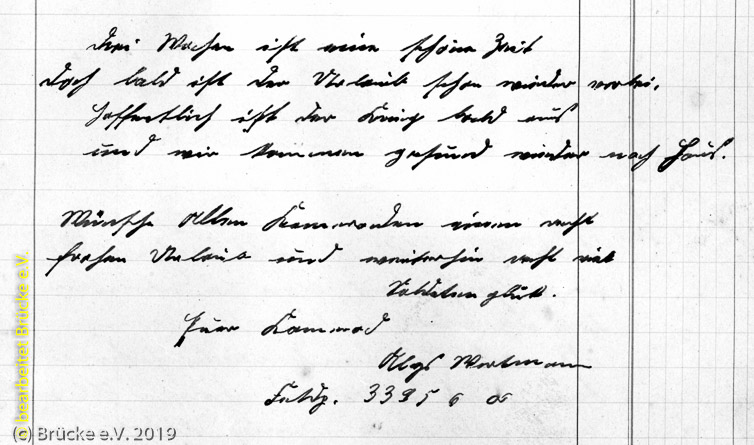 Drei Wochen ist eine schöne Zeit
doch bald ist der Urlaub schon wieder vorbei.
Hoffentlich ist der Krieg bald aus
und wir kommen gesund wieder nach Haus.
Wünsche Allen Kameraden einen recht
frohen Urlaub und weiterhin recht viel
Soldatenglück.
Euer Kamerad
Wortmann
33956
bearbeitet Brücke e.V.
(c) Brücke e.V. 2019